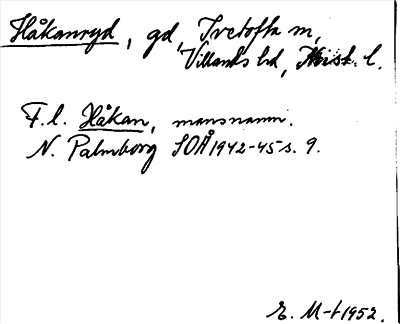 Håkanryd, gd, Ivetofta sn,
Villands hd, Krist. l.
F.l. Håkan, mansnamn.
N. Palmborg SOÅ 1942-45 s. 9.
E. M-t 1952.